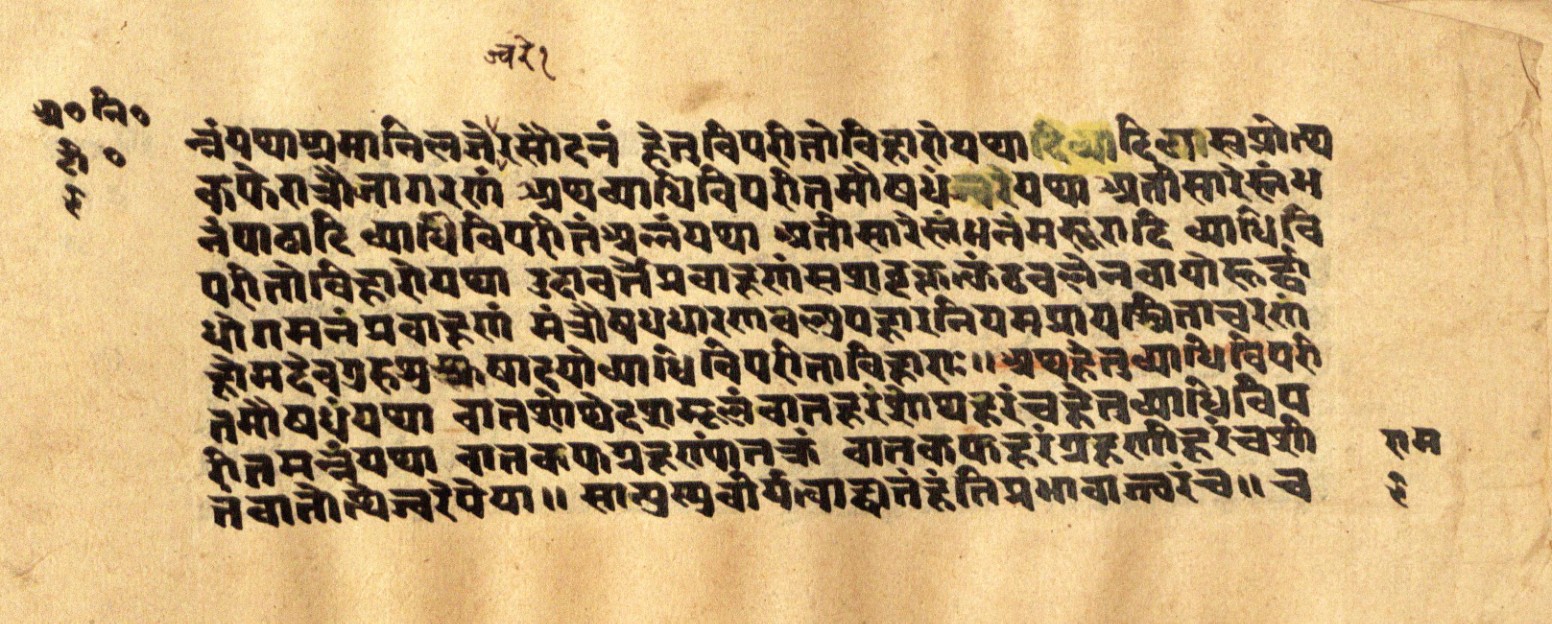 ज्वरे१
अ०नि०
टी०
२
न्नंयथाश्रमानिलजेरसौदनं हेतुविपरीतोविहारोयथादिवादिवास्वप्नोत्थ
कफेरात्रौजागरणं अथव्याधिविपरीतमौषधं यथा अतीसारेस्तंभ
नंपाठादि व्याधिविपरीतंअन्नंयथा अतीसारेस्तंभनंमसूरादि व्याधिवि
परीतोविहारोयथा उदावर्त्तेप्रवाहणं
धोगमनंप्रवाहणं मंत्रौषधधारणवल्युपहारनियमप्रायश्चिताचरणं
होमदेवगुरु विपरीताविहाराः॥ अथहेतुव्याधिविपरी
तमौषधंयथा वातशोथेदशमूलंवातहरंशोथहरंच हेतुव्याधिविप
रीतमन्नंयथा वातकफग्रहण्यांतक्रं वातकफहरंग्रहणीहरंचशी
तवातोत्थेज्वरेपेया॥ साह्युष्णवीर्यत्वाद्वातंहंतिप्रभावाज्ज्वरंच॥ च
राम
२